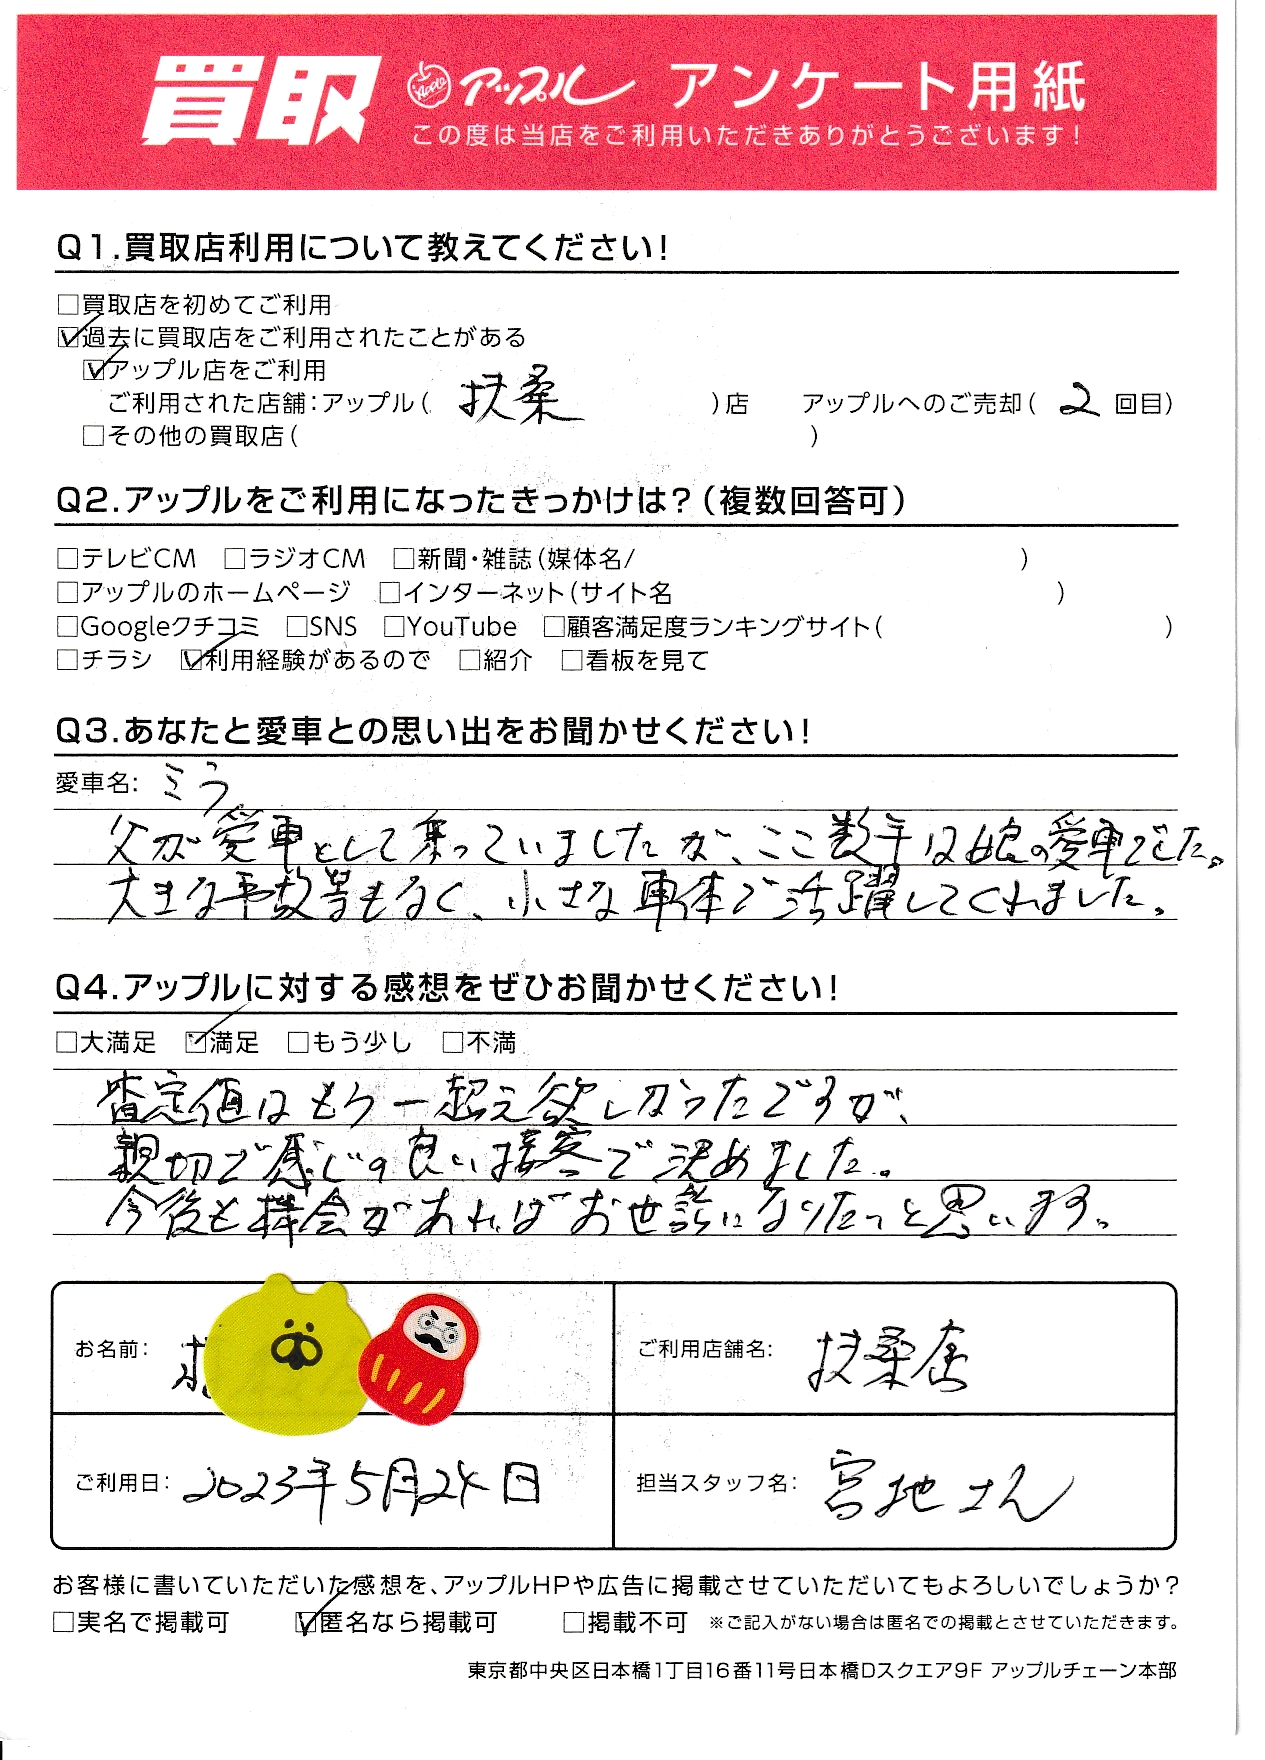 買取 Apple アップル アンケート用紙
この度は当店をご利用いただきありがとうございます！
Q1.買取店利用について教えてください！
□買取店を初めてご利用
☑過去に買取店をご利用されたことがある
☑アップル店をご利用
ご利用された店舗：アップル（ 扶桑 ）店 アップルへのご売却（ 2 回目）
□その他の買取店（ ）
Q2.アップルをご利用になったきっかけは？（複数回答可）
□テレビCM □ラジオCM □新聞・雑誌（媒体名/ ）
□アップルのホームページ □インターネット（サイト名 ）
□Googleクチコミ □SNS □YouTube □顧客満足度ランキングサイト（ ）
□チラシ ☑利用経験があるので □紹介 □看板を見て
Q3.あなたと愛車との思い出をお聞かせください！
愛車名： ミラ
父が愛車として乗っていましたが、ここ数年は娘の愛車でした。
大きな事故等もなく、小さな車体で活躍してくれました。
Q4.アップルに対する感想をぜひお聞かせください！
□大満足 ☑満足 □もう少し □不満
査定値はもう一超え欲しかったですが、
親切で感じの良い接客で決めました。
今後も機会があればお世話になりたいと思います。
お名前： ご利用店舗名： 扶桑店
ご利用日： 2023年5月24日 担当スタッフ名： 宮地さん
お客様に書いていただいた感想を、アップルHPや広告に掲載させていただいてもよろしいでしょうか？
□実名で掲載可 ☑匿名なら掲載可 □掲載不可 ※ご記入がない場合は匿名での掲載とさせていただきます。
東京都中央区日本橋1丁目16番11号日本橋Dスクエア9F アップルチェーン本部